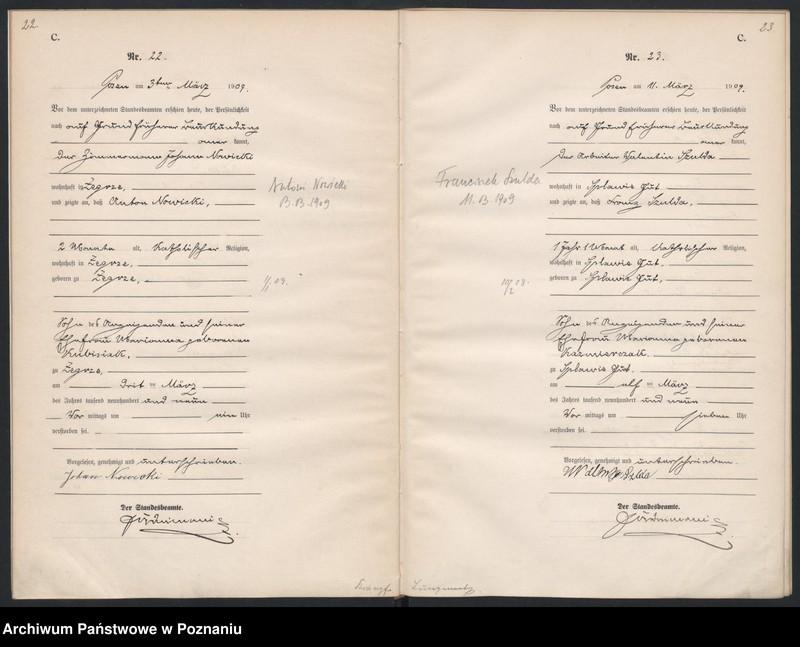 22.
C.
Nr. 22.
Posen am 3ten März 1909.
Vor dem unterzeichneten Standesbeamten erschien heute, der Persönlichkeit
nach auf Grund früherer Beurkundung
kannt,
der Zimmermann Johann Nowicki
wohnhaft in Żegrze,
und zeigte an, daß Anton Nowicki,
2 Monate alt, katholischer Religion,
wohnhaft in Żegrze,
geboren zu Żegrze,
Sohn des Anzeigenden und seiner
Ehefrau Marianna geborenen
Kubisiak,
zu Żegrze,
am drit ten März
des Jahres tausend neunhundert und neun
Vor mittags um ein Uhr
verstorben sei.
Vorgelesen, genehmigt und unterschrieben.
Johann Nowicki
Der Standesbeamte.
Antoni Nowicki
3.03.1909
Krämpfe
23.
C.
Nr. 23.
Posen am 11. März 1909.
Vor dem unterzeichneten Standesbeamten erschien heute, der Persönlichkeit
nach auf Grund früherer Beurkundung
kannt,
der Arbeiter Valentin Szulda
wohnhaft in Splawie Gut,
und zeigte an, daß Franz Szulda,
1 Jahr 1 Monat alt, katholischer Religion,
wohnhaft in Splawie Gut,
geboren zu Splawie Gut,
Sohn des Anzeigenden und seiner
Ehefrau Marianna geborenen
Kazmierczak,
zu Splawie Gut,
am elf ten März
des Jahres tausend neunhundert und neun
Vor mittags um sieben Uhr
verstorben sei.
Vorgelesen, genehmigt und unterschrieben.
Der Standesbeamte.
Franciszek Szulda
11.03.1909
Archiwum Państwowe w Poznaniu